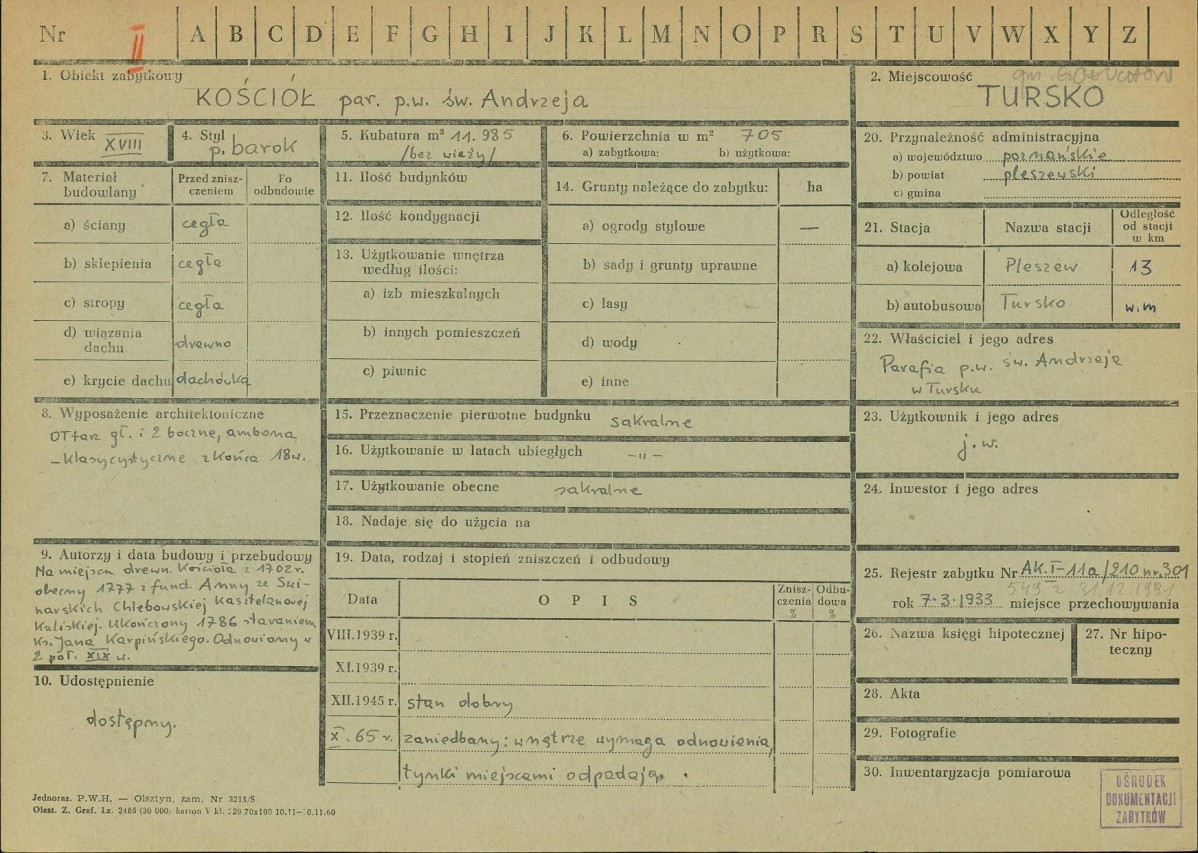 Nr II A B C D E F G H I J K L M N O P R S T U V W X Y Z
1. Obiekt zabytkowy
KOŚCIÓŁ par. p.w. św. Andrzeja
2. Miejscowość gm.
TURSKO
3. Wiek XVIII
4. Styl p. barok
5. Kubatura m³ 11.985
/bez wieży/
6. Powierzchnia w m² 705
a) zabytkowa: b) użytkowa:
7. Materiał budowlany
Przed znisz-
czeniem
Po
odbudowie
a) ściany cegła
b) sklepienia cegła
c) stropy cegła
d) wiązania
dachu drewno
e) krycie dachu dachówka
8. Wyposażenie architektoniczne
Ołtarz gł. i 2 boczne, ambona
– klasycystyczne z końca 18w.
9. Autorzy i data budowy i przebudowy
Na miejscu drewn. Kościoła z 1702r.
obecny 1777 z fund. Anny ze Swi-
narskich Chlebowskiej Kasztelanowej
Kaliskiej. Ukończony 1786 staraniem
Ks. Jana Karpińskiego. Odnowiony w
2 poł. XIX w.
10. Udostępnienie
dostępny.
11. Ilość budynków
12. Ilość kondygnacji
13. Użytkowanie wnętrza
według ilości:
a) izb mieszkalnych
b) innych pomieszczeń
c) piwnic
14. Grunty należące do zabytku: ha
a) ogrody stylowe —
b) sady i grunty uprawne
c) lasy
d) wody
e) inne
15. Przeznaczenie pierwotne budynku sakralne
16. Użytkowanie w latach ubiegłych –"–
17. Użytkowanie obecne sakralne
18. Nadaje się do użycia na
19. Data, rodzaj i stopień zniszczeń i odbudowy
Data
O P I S
Znisz-
czenia
%
Odbu-
dowa
%
VIII.1939 r.
XI.1939 r.
XII.1945 r. stan dobry
X. 65 r. zaniedbany; wnętrze wymaga odnowienia,
tynki miejscami odpadają.
20. Przynależność administracyjna
a) województwo poznańskie
b) powiat pleszewski
c) gmina
21. Stacja
Nazwa stacji
Odległość
od stacji
w km
a) kolejowa Pleszew 13
b) autobusowa Tursko w.m
22. Właściciel i jego adres
Parafia p.w. św. Andrzeja
w Tursku
23. Użytkownik i jego adres
j.w.
24. Inwestor i jego adres
25. Rejestr zabytku Nr AK.I-11a/210 nr.301
z 31.12.1991
rok 7.3.1933 miejsce przechowywania
26. Nazwa księgi hipotecznej
27. Nr hipo-
teczny
28. Akta
29. Fotografie
30. Inwentaryzacja pomiarowa
OŚRODEK
DOKUMENTACJI
ZABYTKÓW
Jednoraz. P.W.H. — Olsztyn, zam. Nr 3215/S
Olszt. Z. Graf. Lz. 2486 (30 000) karton V kl. 220 70x100 10.11-10.11.60